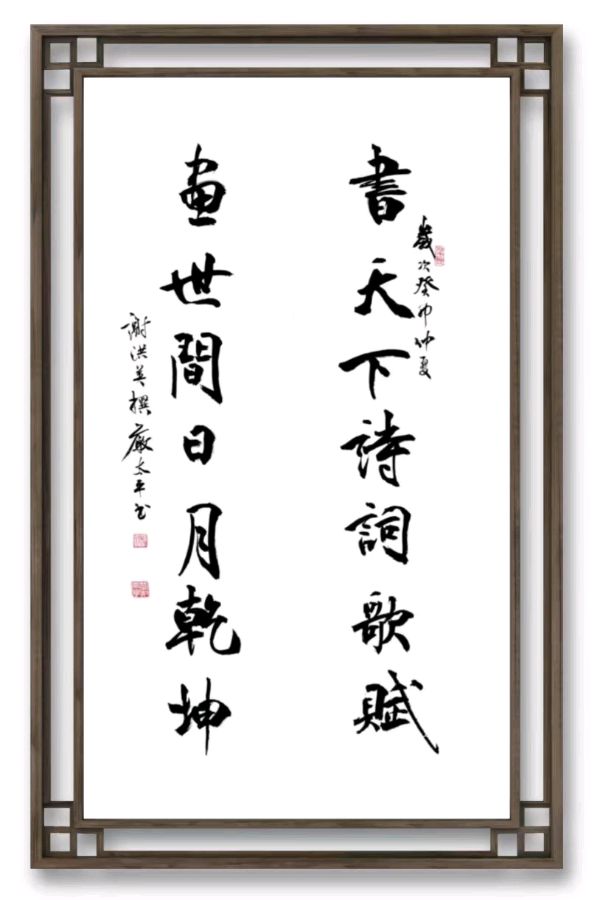 書天下詩詞歌賦
歲次癸卯仲夏
畫世間日月乾坤
謝洪英撰嚴太平书